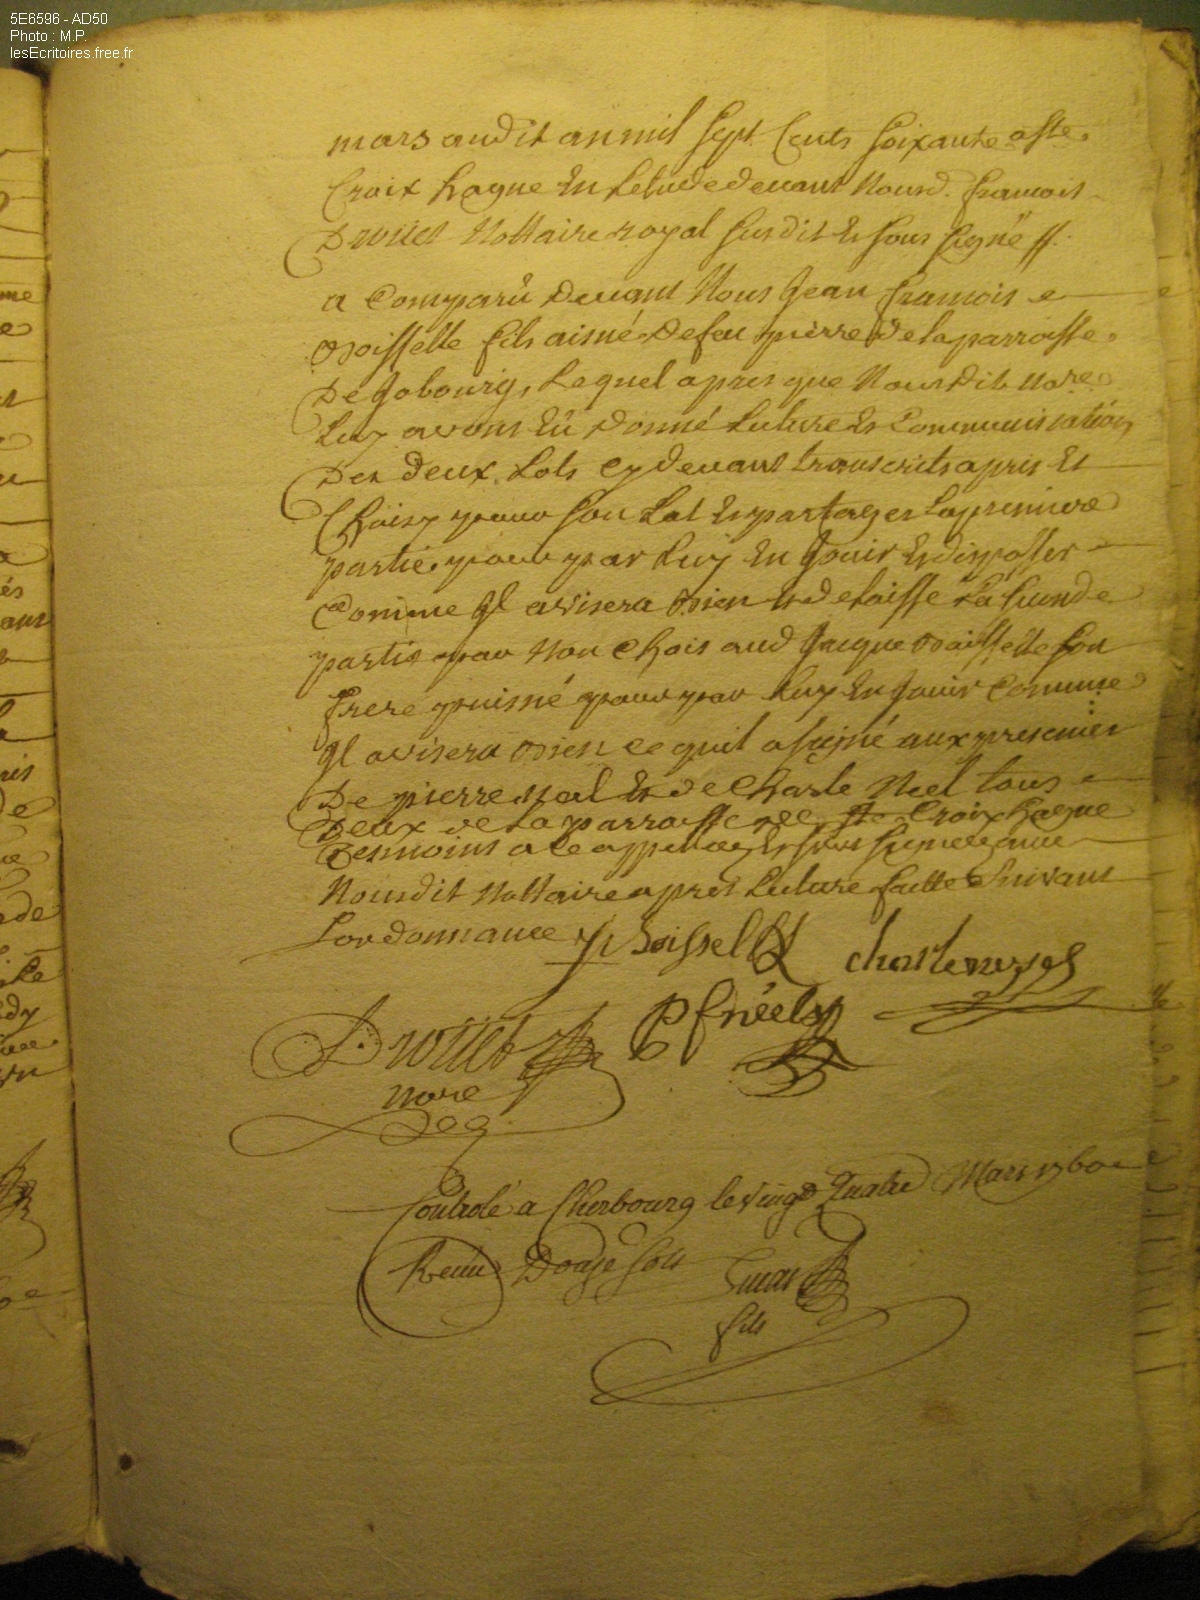 5E6596 - AD50
Photo : M.P.
lesEcritoires.free.fr
mars audit an mil sept cents soixante a ste
Croix hague En Letude devant Nousd. francois
Drouet Nottaire royal susdit Et sous signé
a Comparu devant Nous Jean francois
Boisselle fils aisné de feu pierre de la parroisse
De Jobourg, Lequel apres que Nousdit Nore
Luy avons Eû donné Luture Et Communication
Des deux Lots cy devant transcrits apris Et
Choisy pour son Lot Et partages La premiere
partie pour par Luy En Jouir Et disposser
Comme Jl avisera Bien Et delaissé La Seconde
partie par Non Chois aud Jacque Boisselle son
frere puisné pour par Luy En Jouir Comme
Jl avisera Bien ce quil a signé aux presence
De pierre noel Et de Charle Neel tous
Deux de la parroisse de ste Croix hague
Tesmoins a ce appelles Et sous signes avec
Nousdit Nottaire apres Luture faitte Suivant
Lordonnance Boissell charle
Drouet P f néel
Nore
Controlé a Cherbourg le vingt Quatre Mars 1760
Receu Douze sols
fils